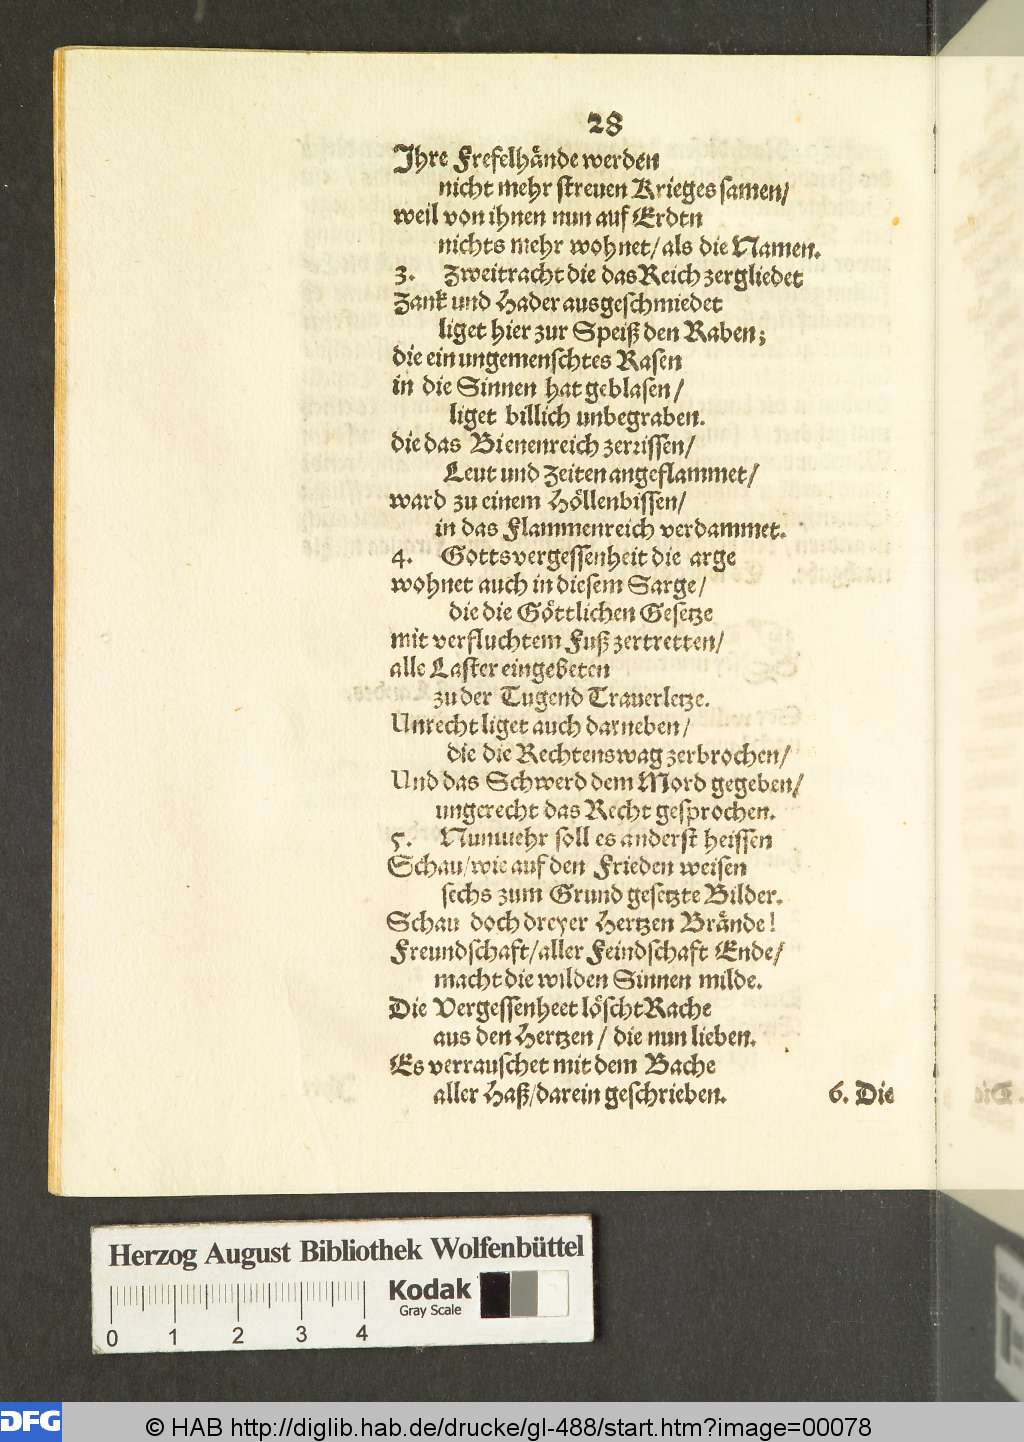 28
Ihre Frefelhände werden
nicht mehr streuen Krieges samen/
weil von ihnen nun auf Erdtn
nichts mehr wohnet/ als die Namen.
3. Zweitracht die das Reich zergliedet
Zank und Hader ausgeschmiedet
liget hier zur Speiß den Raben;
die ein ungemenschtes Rasen
in die Sinnen hat geblasen/
liget billich unbegraben.
die das Bienenreich zerrissen/
Leut und Zeiten angeflammet/
ward zu einem Höllenbissen/
in das Flammenreich verdammet.
4. Gottsvergessenheit die arge
wohnet auch in diesem Sarge/
die die Göttlichen Gesetze
mit verfluchtem Fuß zertretten/
alle Laster eingebeten
zu der Tugend Trauerletze.
Unrecht liget auch darneben/
die die Rechtenswag zerbrochen/
Und das Schwerd dem Mord gegeben/
ungerecht das Recht gesprochen.
5. Nunmehr soll es anderst heissen
Schau/ wie auf den Frieden weisen
sechs zum Grund gesetzte Bilder.
Schau doch dreyer Hertzen Brände!
Freundschaft/ aller Feindschaft Ende/
macht die wilden Sinnen milde.
Die Vergessenheet löscht Rache
aus den Hertzen/ die nun lieben.
Es verrauschet mit dem Bache
aller Haß/ darein geschrieben.
6. Die
Herzog August Bibliothek Wolfenbüttel
Kodak
Gray Scale
0 1 2 3 4
DFG
© HAB http://diglib.hab.de/drucke/gl-488/start.htm?image=00078